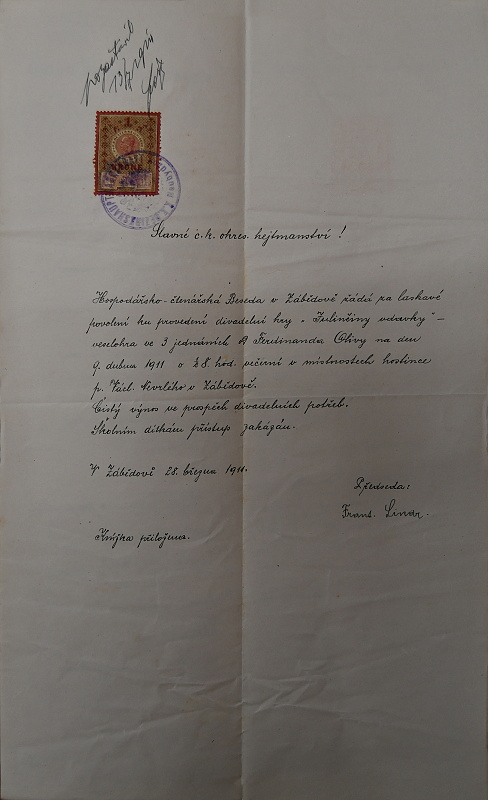 13/
1
KRONE
Slavné c. k. okres. hejtmanství!
Hospodářsko-čtenářská Beseda v Zábědově žádá za laskavé
povolení ku provedení divadelní hry „Julinčiny vdavky" –
veselohra ve 3 jednáních Ferdinanda Olivy na den
9. dubna 1911 o ½8. hod. večerní v místnostech hostince
p. Václ. v Zábědově.
Čistý výnos ve prospěch divadelních potřeb.
Školním dítkám přístup zakázán.
V Zábědově 28. března 1911.
Předseda:
Frant.
Knížka přiložena.